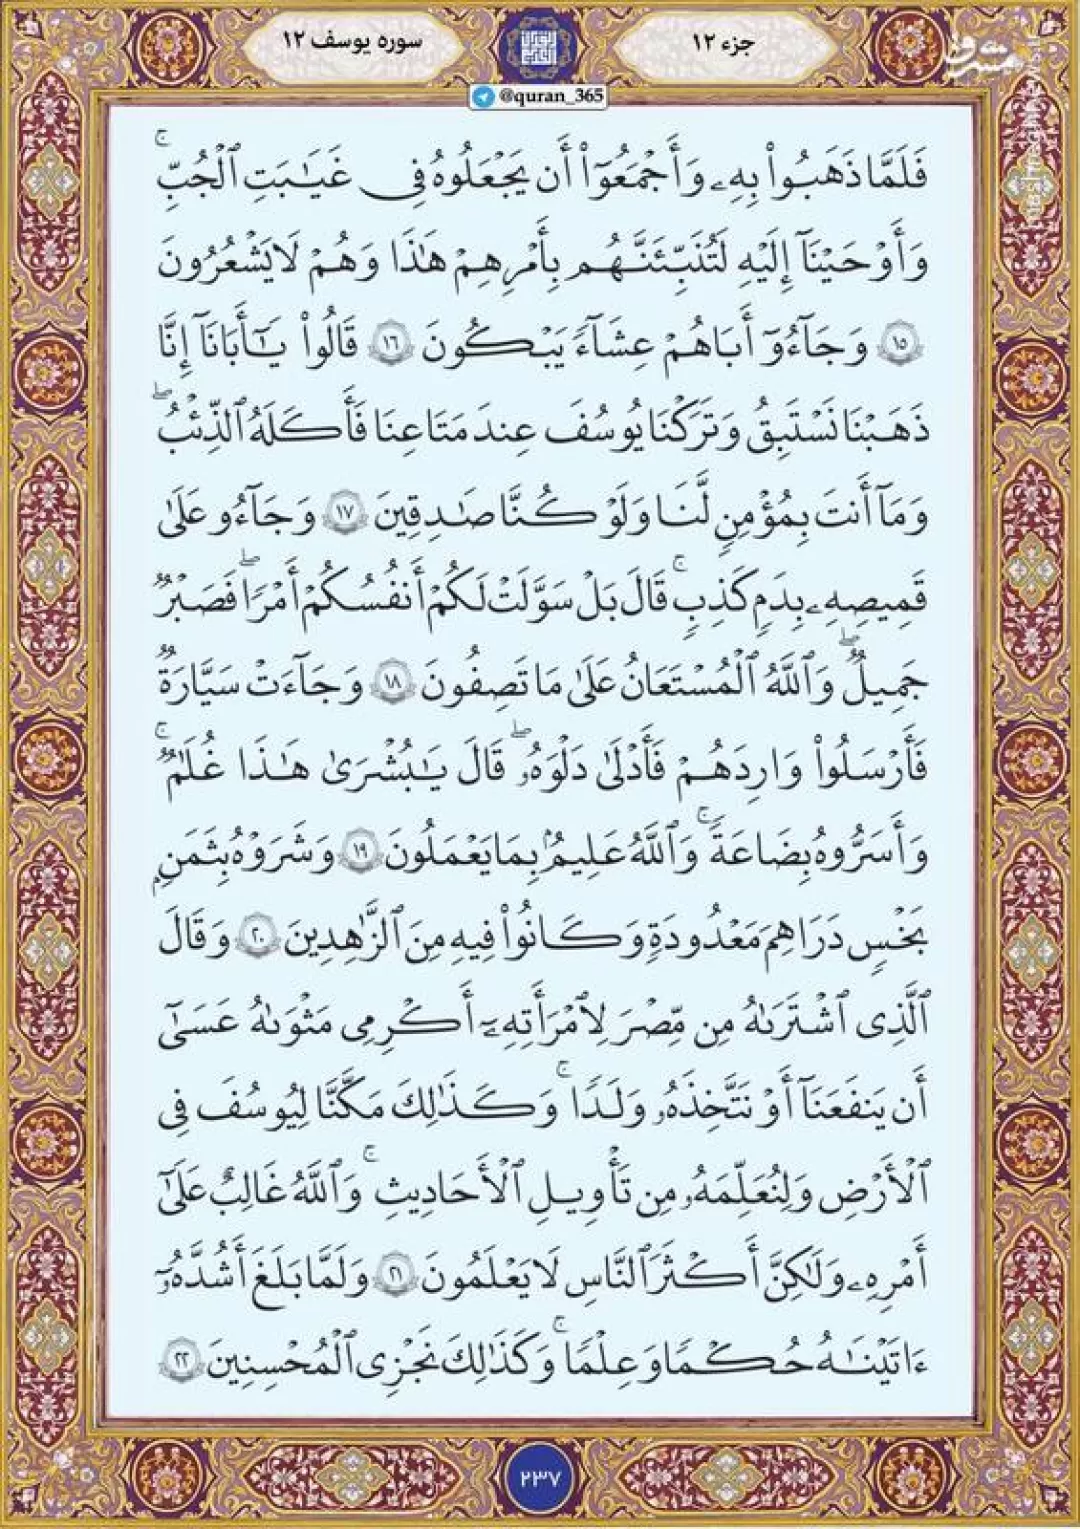 جزء ۱۲
سوره یوسف ۱۲
@quran_365
فَلَمَّا ذَهَبُوا۟ بِهِۦ وَأَجْمَعُوٓا۟ أَن يَجْعَلُوهُ فِى غَيَـٰبَتِ ٱلْجُبِّ ۚ
وَأَوْحَيْنَآ إِلَيْهِ لَتُنَبِّئَنَّهُم بِأَمْرِهِمْ هَـٰذَا وَهُمْ لَا يَشْعُرُونَ
۱۵ وَجَآءُوٓ أَبَاهُمْ عِشَآءً يَبْكُونَ ۱۶ قَالُوا۟ يَـٰٓأَبَانَآ إِنَّا
ذَهَبْنَا نَسْتَبِقُ وَتَرَكْنَا يُوسُفَ عِندَ مَتَاعِنَا فَأَكَلَهُ ٱلذِّئْبُ ۖ
وَمَآ أَنتَ بِمُؤْمِنٍ لَّنَا وَلَوْ كُنَّا صَـٰدِقِينَ ۱۷ وَجَآءُو عَلَىٰ
قَمِيصِهِۦ بِدَمٍ كَذِبٍ ۚ قَالَ بَلْ سَوَّلَتْ لَكُمْ أَنفُسُكُمْ أَمْرًا ۖ فَصَبْرٌ
جَمِيلٌ ۖ وَٱللَّهُ ٱلْمُسْتَعَانُ عَلَىٰ مَا تَصِفُونَ ۱۸ وَجَآءَتْ سَيَّارَةٌ
فَأَرْسَلُوا۟ وَارِدَهُمْ فَأَدْلَىٰ دَلْوَهُۥ ۖ قَالَ يَـٰبُشْرَىٰ هَـٰذَا غُلَـٰمٌ ۚ
وَأَسَرُّوهُ بِضَاعَةً ۚ وَٱللَّهُ عَلِيمٌۢ بِمَا يَعْمَلُونَ ۱۹ وَشَرَوْهُ بِثَمَنٍۭ
بَخْسٍ دَرَاهِمَ مَعْدُودَةٍ وَكَانُوا۟ فِيهِ مِنَ ٱلزَّٰهِدِينَ ۲۰ وَقَالَ
ٱلَّذِى ٱشْتَرَىٰهُ مِن مِّصْرَ لِٱمْرَأَتِهِۦٓ أَكْرِمِى مَثْوَىٰهُ عَسَىٰٓ
أَن يَنفَعَنَآ أَوْ نَتَّخِذَهُۥ وَلَدًا ۚ وَكَذَٰلِكَ مَكَّنَّا لِيُوسُفَ فِى
ٱلْأَرْضِ وَلِنُعَلِّمَهُۥ مِن تَأْوِيلِ ٱلْأَحَادِيثِ ۚ وَٱللَّهُ غَالِبٌ عَلَىٰٓ
أَمْرِهِۦ وَلَـٰكِنَّ أَكْثَرَ ٱلنَّاسِ لَا يَعْلَمُونَ ۲۱ وَلَمَّا بَلَغَ أَشُدَّهُۥٓ
ءَاتَيْنَـٰهُ حُكْمًا وَعِلْمًا ۚ وَكَذَٰلِكَ نَجْزِى ٱلْمُحْسِنِينَ ۲۲
۲۳۷